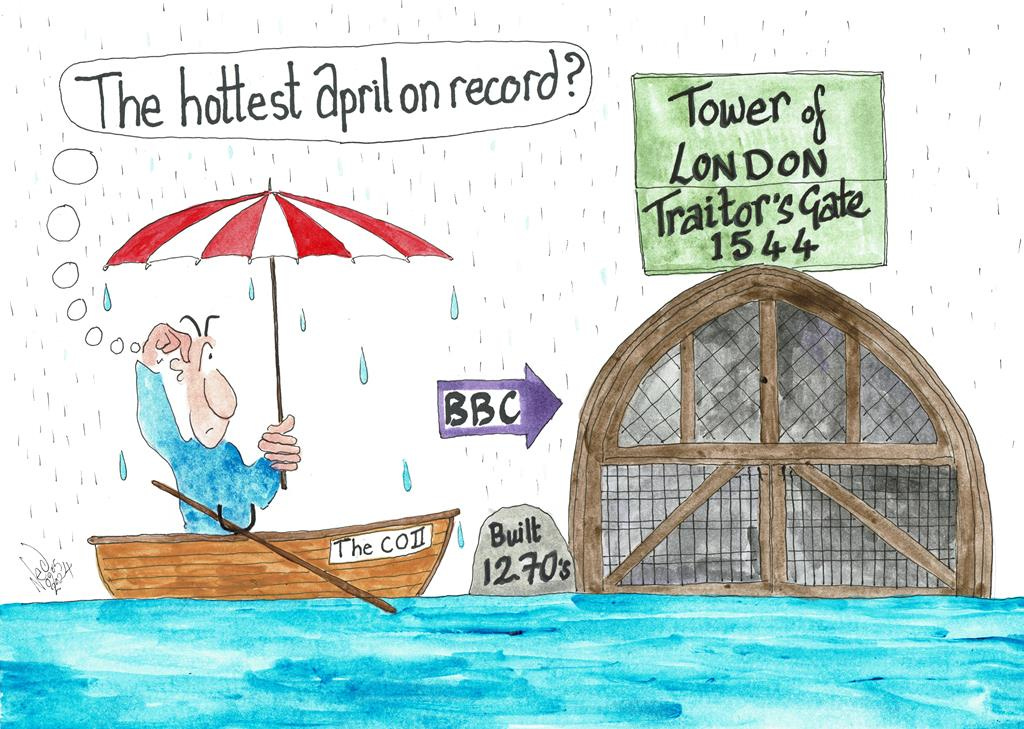 The hottest april on record?
Tower of
LONDON
Traitor's Gate
1544
BBC
The COII
Built
1270's
2024